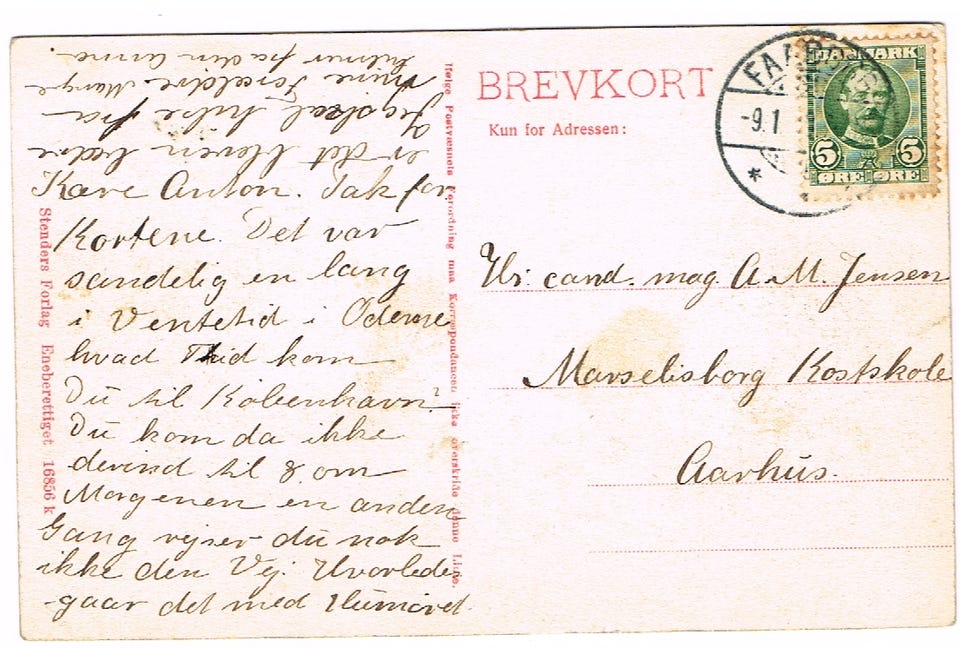 BREVKORT
Kun for Adressen:
FAABORG
-9.1
DANMARK
5 5
ØRE ØRE
Hr. cand. mag. A. M. Jensen
Marselisborg Kostskole
Aarhus.
Kære Anton. Tak for
Kortene. Det var
sandelig en lang
i Ventetid i Odense
hvad Tid kom
Du til København?
Du kom da ikke
derind til 8 om
Morgenen en anden
Gang rejser du nok
ikke den Vej. Hvorledes
gaar det med Humøret
er det bleven bedre
Jeg skal hilse fra
mine Forældre Mange
hilsner fra din Anna.
Ifølge Postvæsnets Forordning maa Korrespondancen ikke overskride denne Linie.
Stenders Forlag Eneberettiget 16856 k